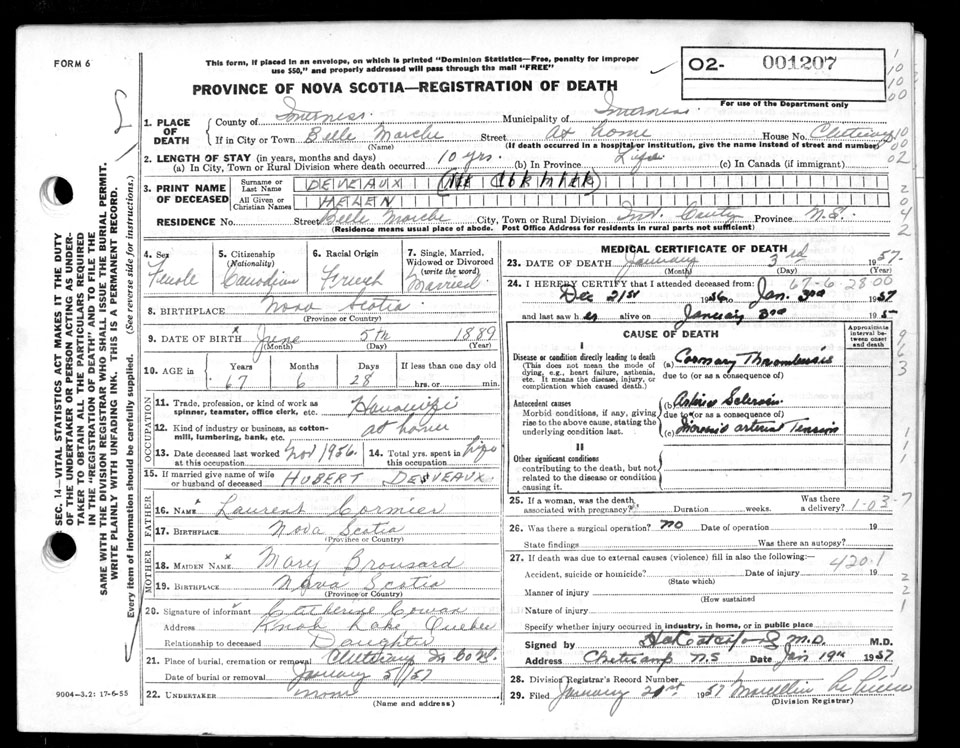 FORM 6
This form, if placed in an envelope, on which is printed "Dominion Statistics—Free, penalty for improper
use $50," and properly addressed will pass through the mail "FREE"
O2- 001207
For use of the Department only
PROVINCE OF NOVA SCOTIA—REGISTRATION OF DEATH
1. PLACE OF DEATH
County of Inverness. Municipality of Inverness.
If in City or Town Belle Marche Street at home House No. Cheticamp
(Name) (If death occurred in a hospital or institution, give the name instead of street and number)
2. LENGTH OF STAY (in years, months and days)
(a) In City, Town or Rural Division where death occurred 10 yrs. (b) In Province Life (c) In Canada (if immigrant)
3. PRINT NAME OF DECEASED
Surname or Last Name DEVEAUX
All Given or Christian Names HELEN
RESIDENCE No. Street Belle Marche City, Town or Rural Division Inv. County Province N.S.
(Residence means usual place of abode. Post Office Address for residents in rural parts not sufficient)
4. Sex Female
5. Citizenship (Nationality) Canadian
6. Racial Origin French
7. Single, Married, Widowed or Divorced (write the word) Married
8. BIRTHPLACE Nova Scotia
(Province or Country)
9. DATE OF BIRTH June 5th 1889
(Month) (Day) (Year)
10. AGE in Years Months Days If less than one day old
67 6 28 hrs. or min.
OCCUPATION
11. Trade, profession, or kind of work as spinner, teamster, office clerk, etc.
12. Kind of industry or business, as cotton-mill, lumbering, bank, etc. at home
13. Date deceased last worked at this occupation Nov 1956
14. Total yrs. spent in this occupation life
15. If married give name of wife or husband of deceased HUBERT DESVEAUX.
FATHER
16. NAME Laurent Cormier
17. BIRTHPLACE Nova Scotia
(Province or Country)
MOTHER
18. MAIDEN NAME Mary Brousard
19. BIRTHPLACE Nova Scotia
(Province or Country)
20. Signature of informant Catherine Cowan
Address Knob Lake, Quebec
Relationship to deceased Daughter
21. Place of burial, cremation or removal Cheticamp
Date of burial or removal January 5/57
22. UNDERTAKER none
(Name and address)
MEDICAL CERTIFICATE OF DEATH
23. DATE OF DEATH January 3rd 1957.
(Month) (Day) (Year)
67-6-28 00
24. I HEREBY CERTIFY that I attended deceased from:
Dec 21st 1956 to Jan. 3rd 1957
and last saw her alive on January 3rd 195
CAUSE OF DEATH
Approximate interval between onset and death
I
Disease or condition directly leading to death
(This does not mean the mode of dying, e.g., heart failure, asthenia, etc. It means the disease, injury, or complication which caused death.)
(a) Coronary Thrombosis
due to (or as a consequence of)
Antecedent causes
Morbid conditions, if any, giving rise to the above cause, stating the underlying condition last.
(b)
due to (or as a consequence of)
(c) arterial Tension
II
Other significant conditions
contributing to the death, but not related to the disease or condition causing it.
25. If a woman, was the death associated with pregnancy? Duration weeks. Was there a delivery?
1-03-7
26. Was there a surgical operation? no Date of operation 19
State findings Was there an autopsy?
27. If death was due to external causes (violence) fill in also the following:
420.1
Accident, suicide or homicide? Date of injury 19
(State which)
Manner of injury
(How sustained
Nature of injury
Specify whether injury occurred in industry, in home, or in public place
Signed by M.D. M.D.
Address Cheticamp N.S Date Jan 19th 1957
28. Division Registrar's Record Number
29. Filed January 21st 1957 Marcellin
(Division Registrar)
SEC. 14—VITAL STATISTICS ACT MAKES IT THE DUTY
OF THE UNDERTAKER OR PERSON ACTING AS UNDER-
TAKER TO OBTAIN ALL THE PARTICULARS REQUIRED
IN THE "REGISTRATION OF DEATH" AND TO FILE THE
SAME WITH THE DIVISION REGISTRAR WHO SHALL ISSUE THE BURIAL PERMIT.
WRITE PLAINLY WITH UNFADING INK. THIS IS A PERMANENT RECORD.
Every item of information should be carefully supplied. (See reverse side for instructions.)
9004-3.2: 17-6-55